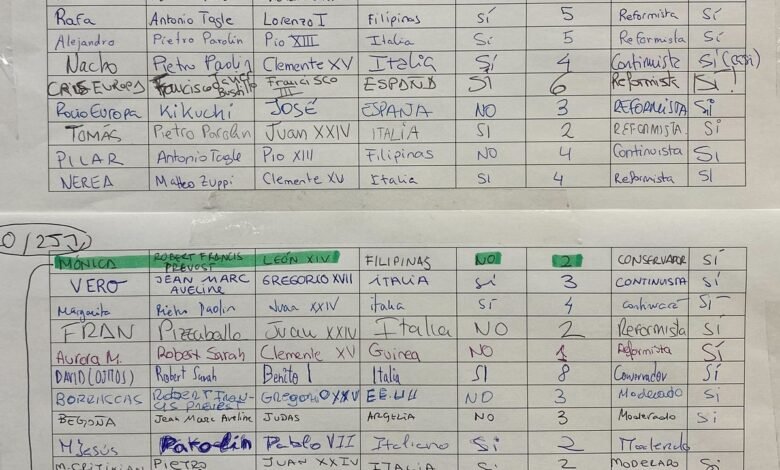 Rafa Antonio Tagle Lorenzo I Filipinas SÍ 5 Reformista SÍ
Alejandro Pietro Parolin Pio XIII Italia Sí 5 Reformista Sí
Nacho Pietro Parolin Clemente XV Italia Sí 4 Continuista Sí (casi)
CRIS EUROPA Francisco Javier Bustillo Francisco III ESPAÑA SÍ 6 Reformista SÍ!
Rocio Europa Kikuchi JOSÉ ESPAÑA NO 3 REFORMISTA SÍ
TOMÁS Pietro Parolin Juan XXIV ITALIA SI 2 REFORMISTA SÍ
PILAR Antonio Tagle Pio XIII Filipinas NO 4 Continuista SÍ
NEREA Matteo Zuppi Clemente XV Italia SI 4 Reformista SI
MÓNICA ROBERT FRANCIS PREVOST LEÓN XIV FILIPINAS NO 2 CONSERVADOR SÍ
VERO JEAN MARC AVELINE GREGORIO XVII ITALIA SÍ 3 CONTINUISTA SÍ
Margarita Pietro Parolin Juan XXIV italia SÍ 4 SÍ
FRAN Pizzaballo Juan XXIV Italia NO 2 Reformista SÍ
Aurora M. Robert Sarah Clemente XV Guinea NO 1 Reformista SÍ
DAVID (OJITOS) Robert Sarah Benito I Italia SI 8 Conservador SÍ
ROBERT FRANCIS PREVOST GREGORIO XXV EE.UU NO 3 Moderado SÍ
BEGOÑA Jean Marc Aveline JUDAS ARGELIA NO 3 Moderado Sí
M JESÚS Parolin Pablo VII Italiano Sí 2 Moderado Sí
PIETRO JUAN XXIV ITALIA SÍ 2 MODERADO SÍ